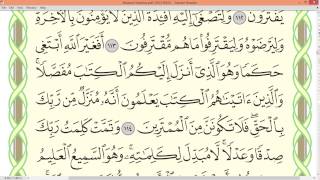 يَفْتَرُونَ ١١٢ وَلِتَصْغَىٰ إِلَيْهِ أَفْـِٔدَةُ الَّذِينَ لَا يُؤْمِنُونَ بِالْـَٔاخِرَةِ
وَلِيَرْضَوْهُ وَلِيَقْتَرِفُوا مَا هُم مُّقْتَرِفُونَ ١١٣ أَفَغَيْرَ اللَّهِ أَبْتَغِى
حَكَمًا وَهُوَ الَّذِىٓ أَنزَلَ إِلَيْكُمُ الْكِتَٰبَ مُفَصَّلًا ۚ
وَالَّذِينَ ءَاتَيْنَٰهُمُ الْكِتَٰبَ يَعْلَمُونَ أَنَّهُۥ مُنَزَّلٌ مِّن رَّبِّكَ
بِالْحَقِّ ۖ فَلَا تَكُونَنَّ مِنَ الْمُمْتَرِينَ ١١٤ وَتَمَّتْ كَلِمَتُ رَبِّكَ
صِدْقًا وَعَدْلًا ۚ لَّا مُبَدِّلَ لِكَلِمَٰتِهِۦ ۚ وَهُوَ السَّمِيعُ الْعَلِيمُ